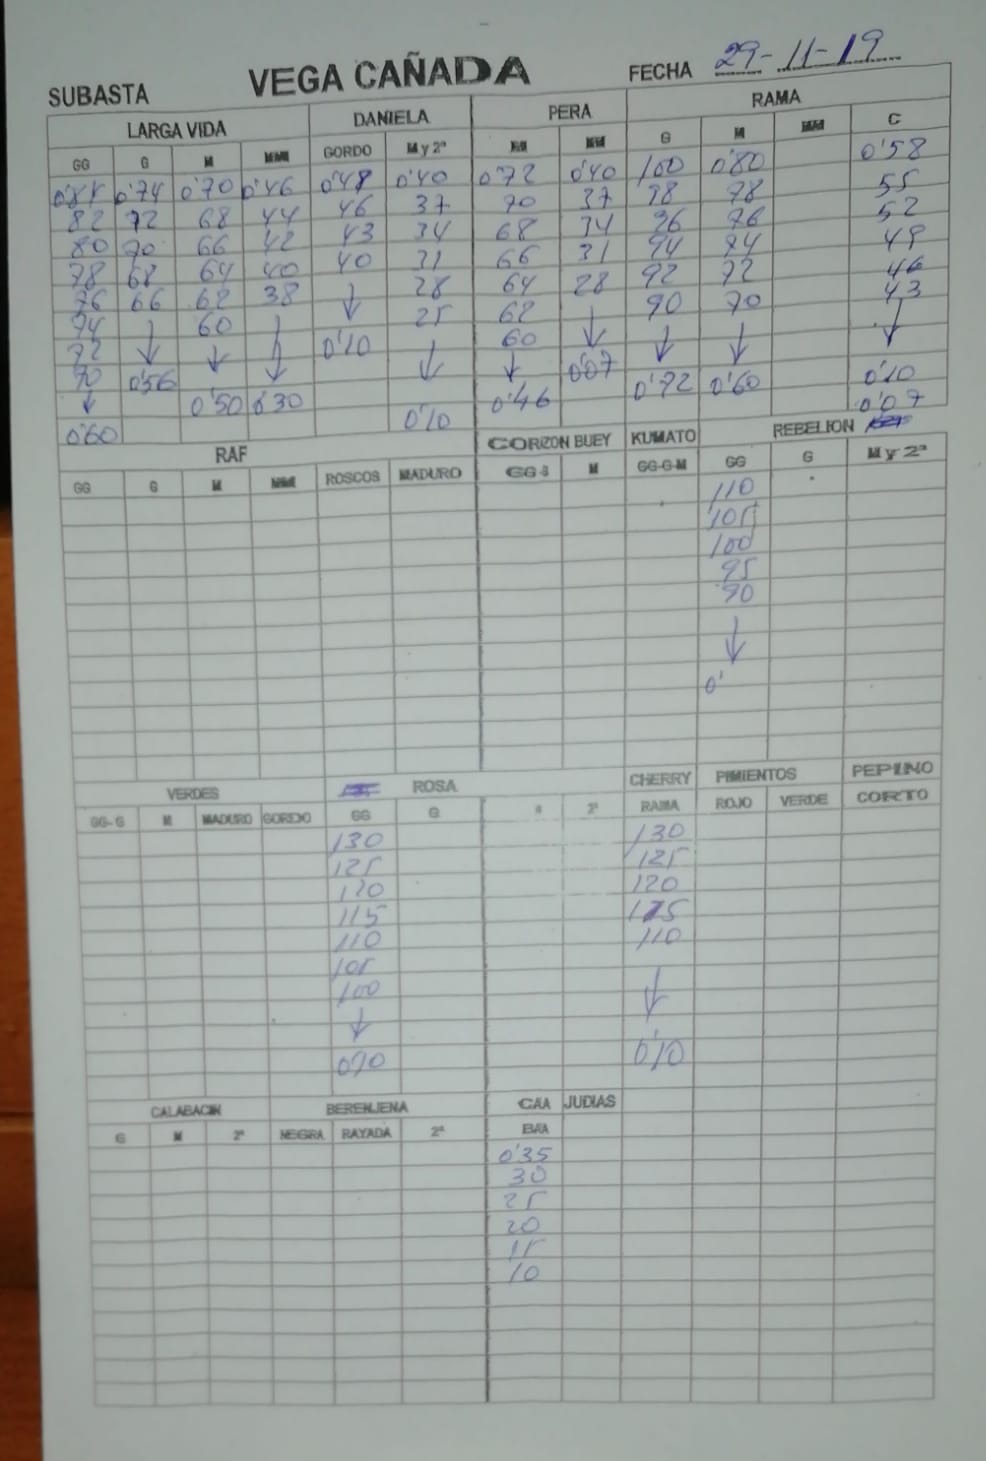 SUBASTA VEGA CAÑADA FECHA 29-11-19
LARGA VIDA DANIELA PERA RAMA
GG G M MM GORDO M y 2ª M MM G M MM C
0'74 0'70 0'46 0'48 0'40 0'72 0'40 100 0'80 0'58
82 72 68 44 46 37 70 37 98 78 55
80 70 66 42 43 34 68 34 96 76 52
78 68 64 40 40 31 66 31 94 74 49
76 66 62 38 ↓ 28 64 28 92 72 46
74 ↓ 60 ↓ 25 62 ↓ 90 70 43
72 ↓ ↓ 0'20 ↓ 60 ↓ ↓ ↓ ↓
70 0'56 ↓ 0'07 0'72 0'60 0'10
↓ 0'50 0'30 0'10 0'46 0'07
0'60
RAF CORZON BUEY KUMATO REBELION
GG G M MM ROSCOS MADURO GG M GG-G-M GG G M y 2ª
110
105
100
95
90
↓
0'
VERDES ROSA CHERRY PIMIENTOS PEPINO
GG-G M MADURO GORDO GG G 2ª RAMA ROJO VERDE CORTO
130 130
125 125
120 120
115 115
110 110
105
100 ↓
↓
070 0'10
CALABACIN BERENJENA CAA JUDIAS
G M 2ª NEGRA RAYADA 2ª BAA
0'35
30
25
20
15
10